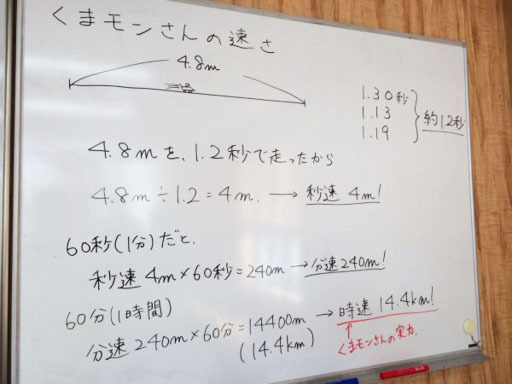 くまモンさんの速さ
4.8m
1.30秒
1.13
1.19
約1.2秒
4.8mを、1.2秒で走ったから
4.8m÷1.2=4m. → 秒速 4m!
60秒(1分)だと、
秒速 4m×60秒=240m → 分速240m!
60分(1時間)
分速 240m×60分=14400m → 時速 14.4km!
(14.4km)
くまモンさんの実力.